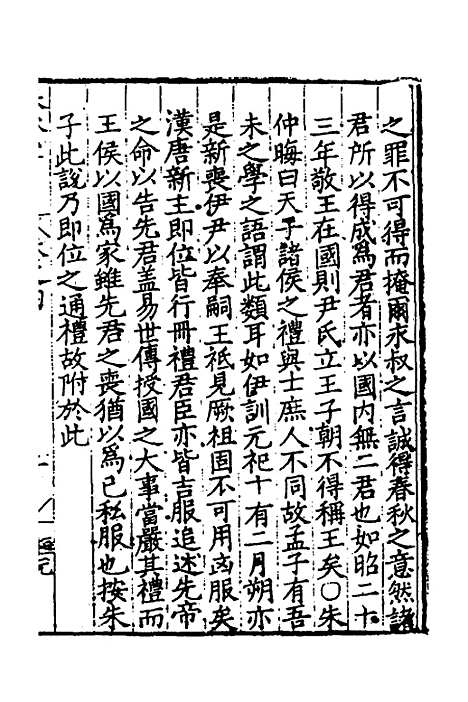 之罪不可得而掩爾永叔之言誠得春秋之意然諸
君所以得成爲君者亦以國内無二君也如昭二十
三年敬王在國則尹氏立王子朝不得稱王矣○朱
仲晦曰天子諸侯之禮與士庶人不同故孟子有吾
未之學之語謂此類耳如伊訓元祀十有二月朔亦
是新喪伊尹以奉嗣王祗見厥祖固不可用凶服矣
漢唐新主即位皆行冊禮君臣亦皆吉服追述先帝
之命以告先君盖易世傳授國之大事當嚴其禮而
王侯以國爲家雖先君之喪猶以爲已私服也按朱
子此說乃即位之通禮故附於此